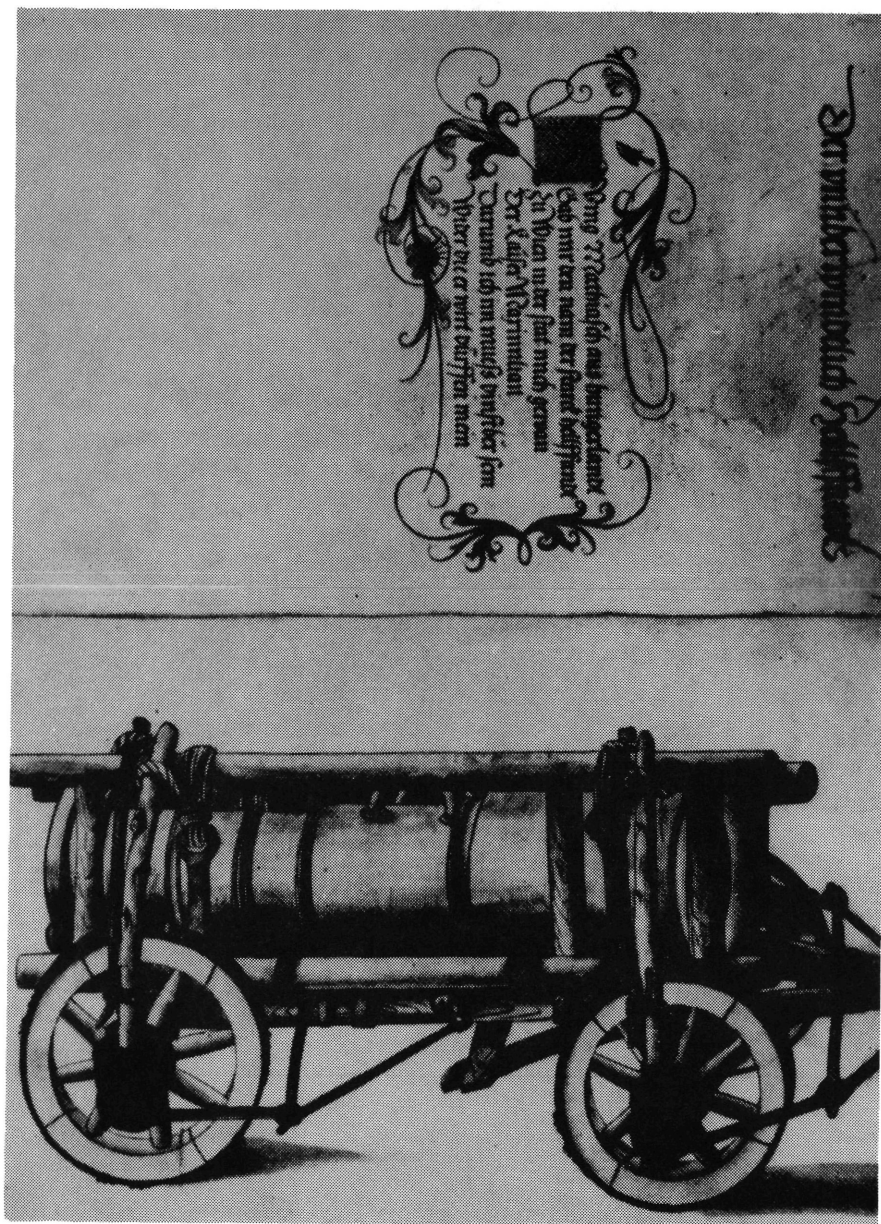 Der Helffant
Vnig Mathiasch aus hungerlandt
Gab mir den nam der starck helffandt
Zu Wien in der stat mich gewan
Der kaiser Maximilian
Darumb ich im muess dinstber sein
Wider die er wirt dürffen mein